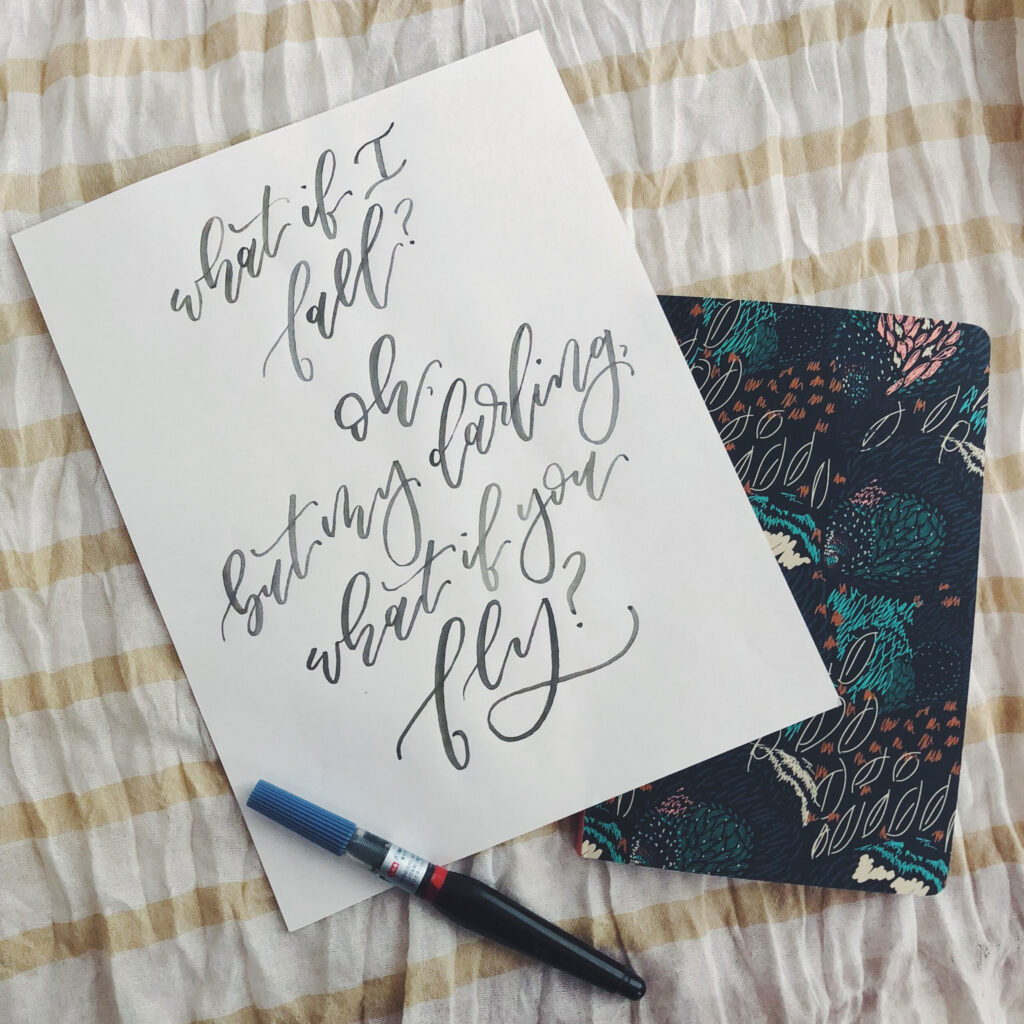 what if I
fall?
oh,
but my darling,
what if you
fly?